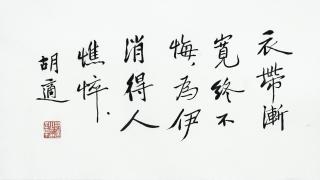 衣帶漸
寬終不
悔，為伊
消得人
憔悴．
胡適